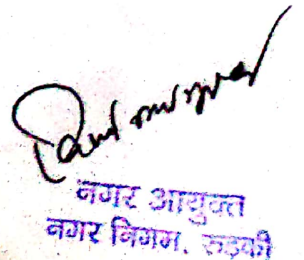 नगर आयुक्त
नगर निगम, रुड़की